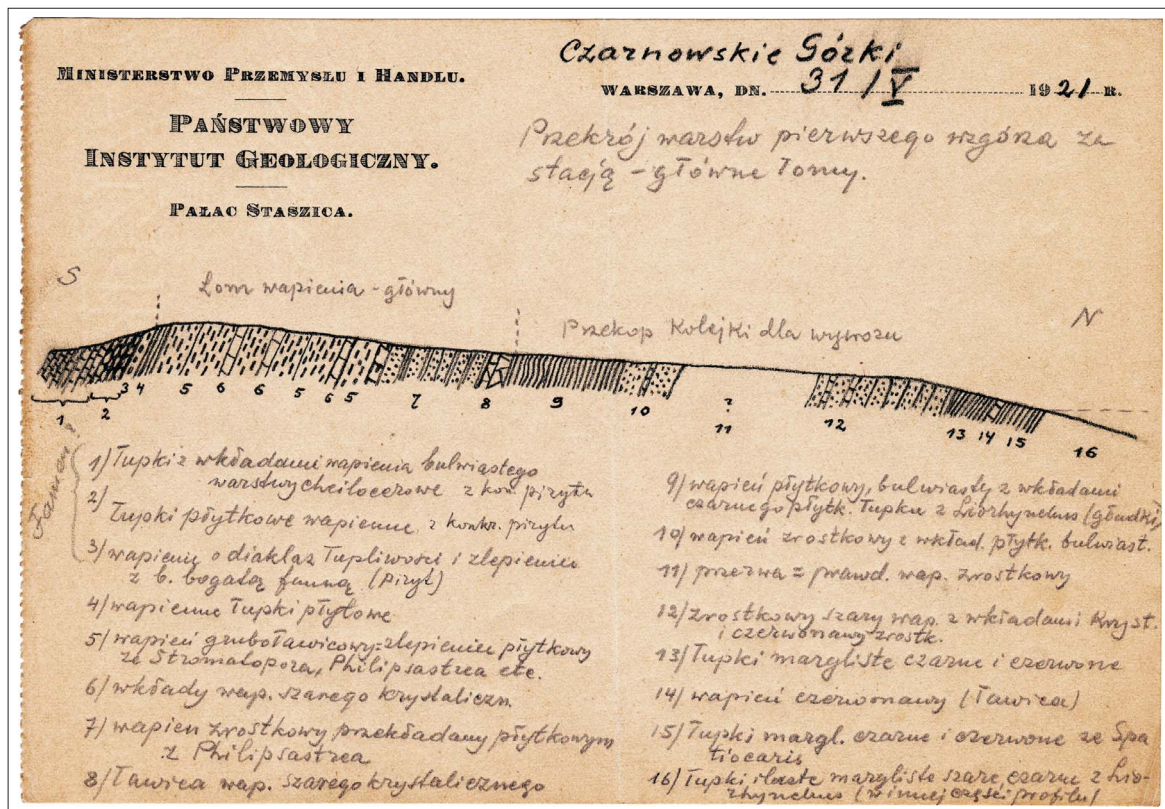 MINISTERSTWO PRZEMYSŁU I HANDLU.
PAŃSTWOWY
INSTYTUT GEOLOGICZNY.
PAŁAC STASZICA.
Czarnowskie Górki
WARSZAWA, DN. 31/V 1921 R.
Przekrój warstw pierwszego wzgórza za
stacją - główne łomy.
S
Łom wapienia - główny
Przekop Kolejki dla wywozu
N
1 2 3 4 5 6 6 5 6 5 7 8 9 10 ? 11 12 13 14 15 16
Famen ?
1) Łupki z wkładami wapienia bulwiastego
warstwy cheilocerowe z kon. pirytu
2) Łupki płytkowe wapienne, z konkr. pirytu
3) wapienie o diaklaz łupliwości i zlepieniec
z b. bogatą fauną (Piryt)
4) wapienne łupki płytowe
5) wapień gruboławicowy-zlepieniec płytkowy
ze Stromatopora, Philipsastrea etc.
6) wkłady wap. szarego krystaliczn.
7) wapien zrostkowy przekładany płytkowym
z Philipsastrea
8) Ławica wap. szarego krystalicznego
9) wapień płytkowy, bulwiasty z wkładami
czarnego płytk. łupku z Liorhynchus (gładki)
10) wapień zrostkowy z wkład. płytk. bulwiast.
11) przerwa = prawd. wap. zrostkowy
12) zrostkowy szary wap. z wkładami Kryst.
i czerwonawy zrostk.
13) Łupki margliste czarne i czerwone
14) wapień czerwonawy (Ławica)
15) Łupki margl. czarne i czerwone ze Spa
tiocaris
16) Łupki ilaste margliste szare, czarne z Lio-
rhynchus (w innej części profilu)